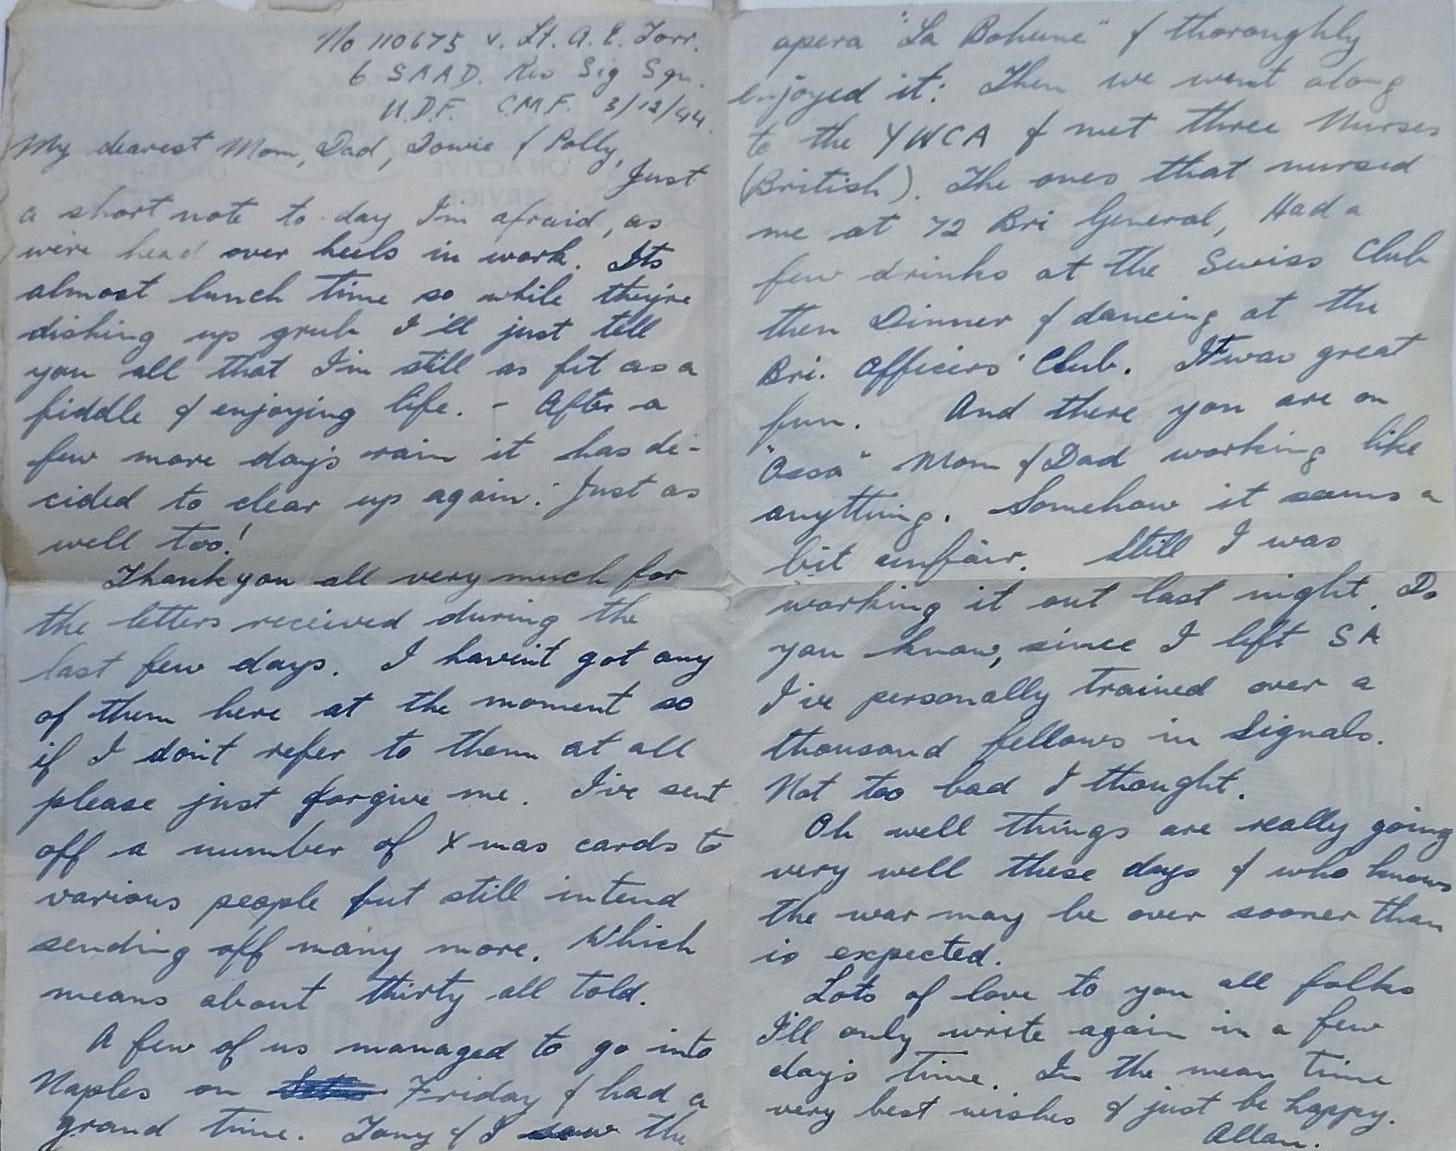 No 110675 v. Lt. A. E. Torr.
6 SAAD. Rec Sig Sqn.
U.D.F. C.M.F. 3/12/44.
My dearest Mom, Dad, Towie & Polly,
Just
a short note to day I'm afraid, as
we're head over heels in work. Its
almost lunch time so while they're
dishing up grub I'll just tell
you all that I'm still as fit as a
fiddle & enjoying life. - After a
few more day's rain it has de-
cided to clear up again. Just as
well too!
Thank you all very much for
the letters received during the
last few days. I haven't got any
of them here at the moment so
if I don't refer to them at all
please just forgive me. I've sent
off a number of Xmas cards to
various people but still intend
sending off many more. Which
means about thirty all told.
A few of us managed to go into
Naples on Friday & had a
grand time. Tony & I saw the
opera "La Boheme" & thoroughly
enjoyed it: Then we went along
to the YWCA & met three Nurses
(British). The ones that nursed
me at 72 Bri General, Had a
few drinks at the Swiss Club
then Dinner & dancing at the
Bri. Officers' Club. It was great
fun. And there you are on
"Ossa" Mom & Dad working like
anything. Somehow it seems a
bit unfair. Still I was
working it out last night. Do
you know, since I left SA
I've personally trained over a
thousand fellows in Signals.
Not too bad I thought.
Oh well things are really going
very well these days & who knows
the war may be over sooner than
is expected.
Lots of love to you all folks
I'll only write again in a few
days time. In the mean time
very best wishes & just be happy.
Allan.